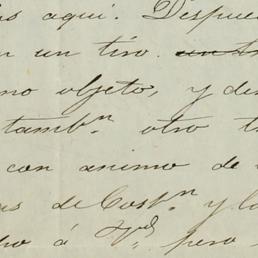 aqui. Despue
un tiro.
mo objeto, y des
tambn. otro t
con animo de
de Costn y l
á pero